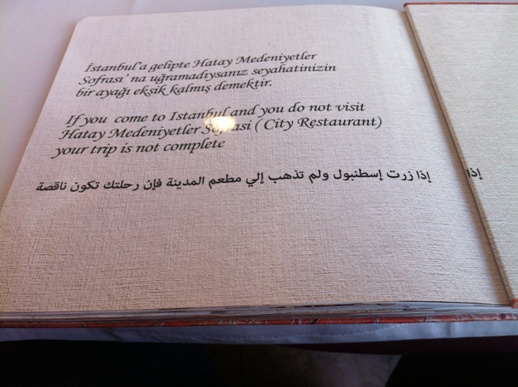 İstanbul'a gelipte Hatay Medeniyetler
Sofrası' na uğramadıysanız seyahatinizin
bir ayağı ekşik kalmış demektir.
If you come to Istanbul and you do not visit
Hatay Medeniyetler Sofrasi ( City Restaurant)
your trip is not complete
إذا زرت إسطنبول ولم تذهب إلي مطعم المدينة فإن رحلتك تكون ناقصة
إذا